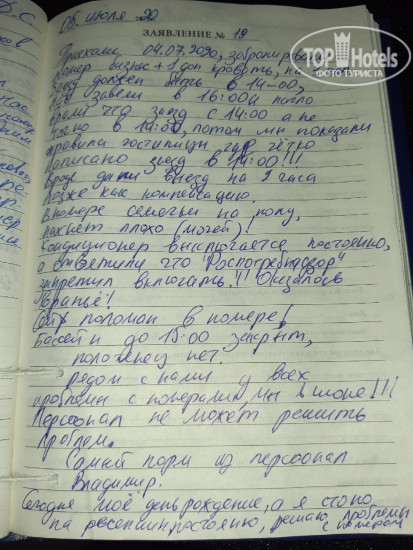 05. июля 20
ЗАЯВЛЕНИЕ № 19
TopHotels
ФОТО ТУРИСТА
Приехали 04.07.2020, забронировали
номер визнес + 1 доп кровать, на
заезд должен быть в 14-00,
нас завели в 16:00 и
что заезд с 14:00 а не
в 14:00, потом мы показали
правила гостиницы где чётко
написано заезд в 14:00!!!
Вроде дали выезд на 2 часа
позже как компенсацию.
В номере семечки на полу,
пахнет плохо (мочей)!
Кондиционер выключается постоянно,
а ответили что "Роспотребнадзор"
запретил включать!!! Оказалось
Враньё!
Сейф поломан в номере!
Бассейн до 15:00 закрыт,
полотенец нет.
рядом с нами у всех
проблемы с номерами, мы в шоке!!!
Персонал не может решить
проблем.
Самый норм из персонал
Владимир.
Сегодня моё день рождение, а я стою
на ресепшн, постоянно, решаю проблемы
с номером